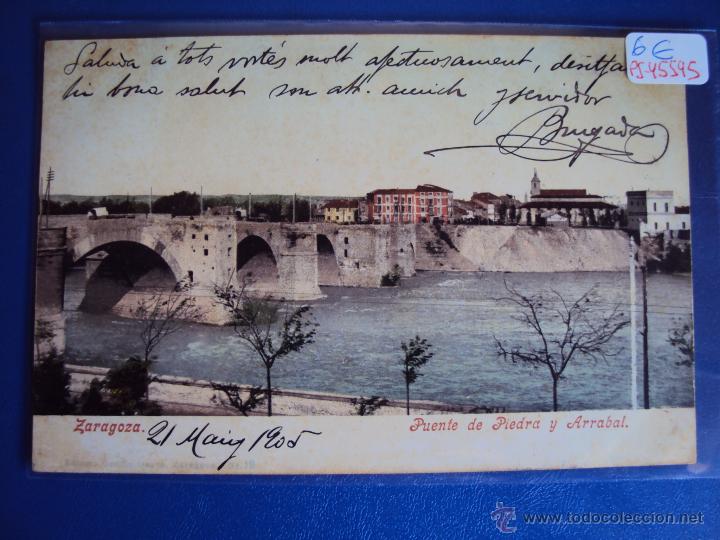 Saluda á tots vostés molt afectuosament, desitjan
li bona salut son att. amich y servidor
Brugada
6€
PS-45545
Zaragoza.
21 Maig 1905
Puente de Piedra y Arrabal.
© todocoleccion www.todocoleccion.net